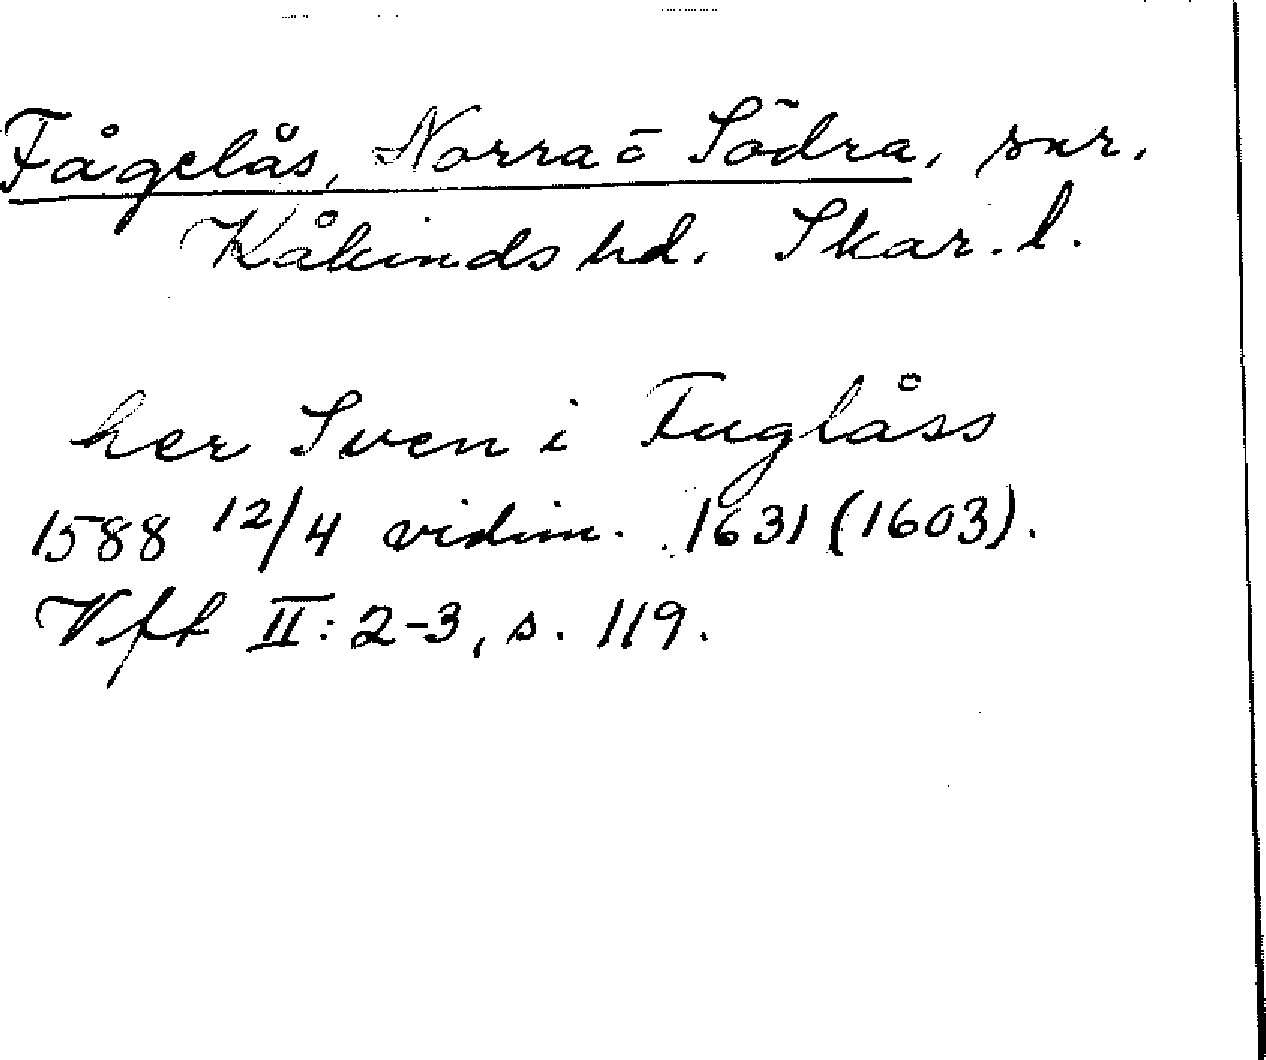 Fågelås, Norra o Södra, snr.
Kåkinds hd. Skar. l.
her Sven i Fuglåss
1588 12/4 vidim. 1631 (1603).
Vft II: 2-3, s. 119.